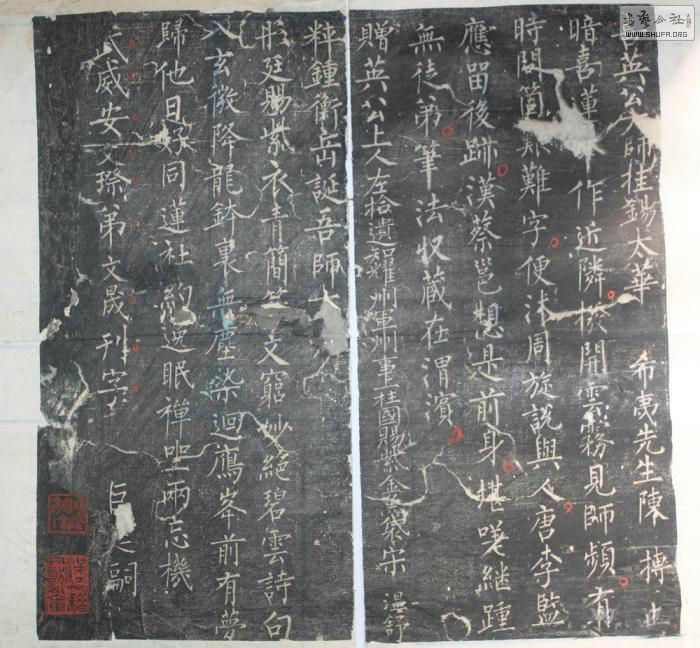 英公大師挂錫太華 希夷先生陳摶上
暗喜蓮 作近隣撥開雲霧見師頻有
時問箇艱難字便沐周旋說與人唐李監
應留後跡漢蔡邕想是前身堪嗟繼踵
無徒弟筆法收藏在渭濱
贈英公上人左拾遺知耀州軍州事上柱國賜紫金魚袋宋 温舒
粹鍾衡岳誕吾師
彤廷賜紫衣青簡竺文窮妙絶碧雲詩句
入玄微降龍鉢裏無塵染迴鴈峯前有夢
歸他日好同蓮社約逃眠禪坐兩忘機
武威安文璨弟文晟刊字 臣 嗣
造藝公社
WWW.SHUFA.ORG